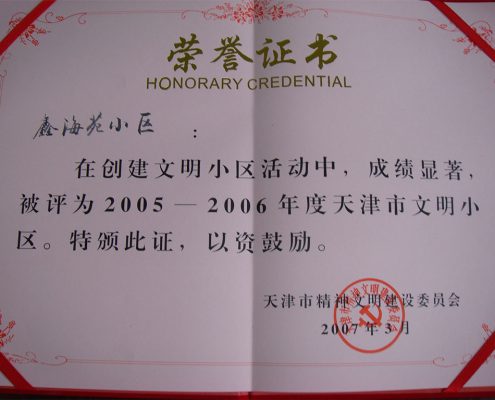 荣誉证书
HONORARY CREDENTIAL
鑫海苑小区 :
在创建文明小区活动中，成绩显著，
被评为 2005 — 2006 年度天津市文明小
区。特颁此证，以资鼓励。
天津市精神文明建设委员会
2007 年 3 月